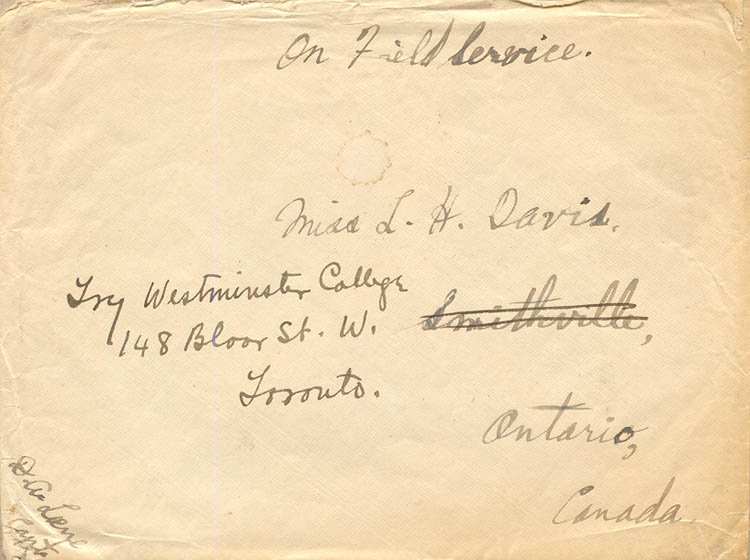 On Field Service.
Miss L. H. Davis.
Try Westminster College
148 Bloor St. W.
Toronto.
Smithville,
Ontario,
Canada.
Capt